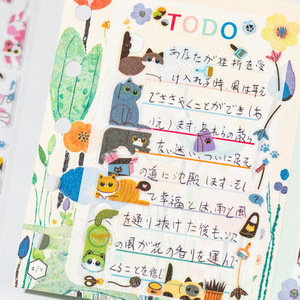 TODO
あなたが挫折を受
け入れる時、風は耳え
でささやくことができ(あ
りえ)ます。あれらの考え
な、迷い、ついに足元
の道に沈殿します。そし
て幸福とは、雨と風
を通り抜けた後も、次
の風が花の香りを運んで
くることを信じ